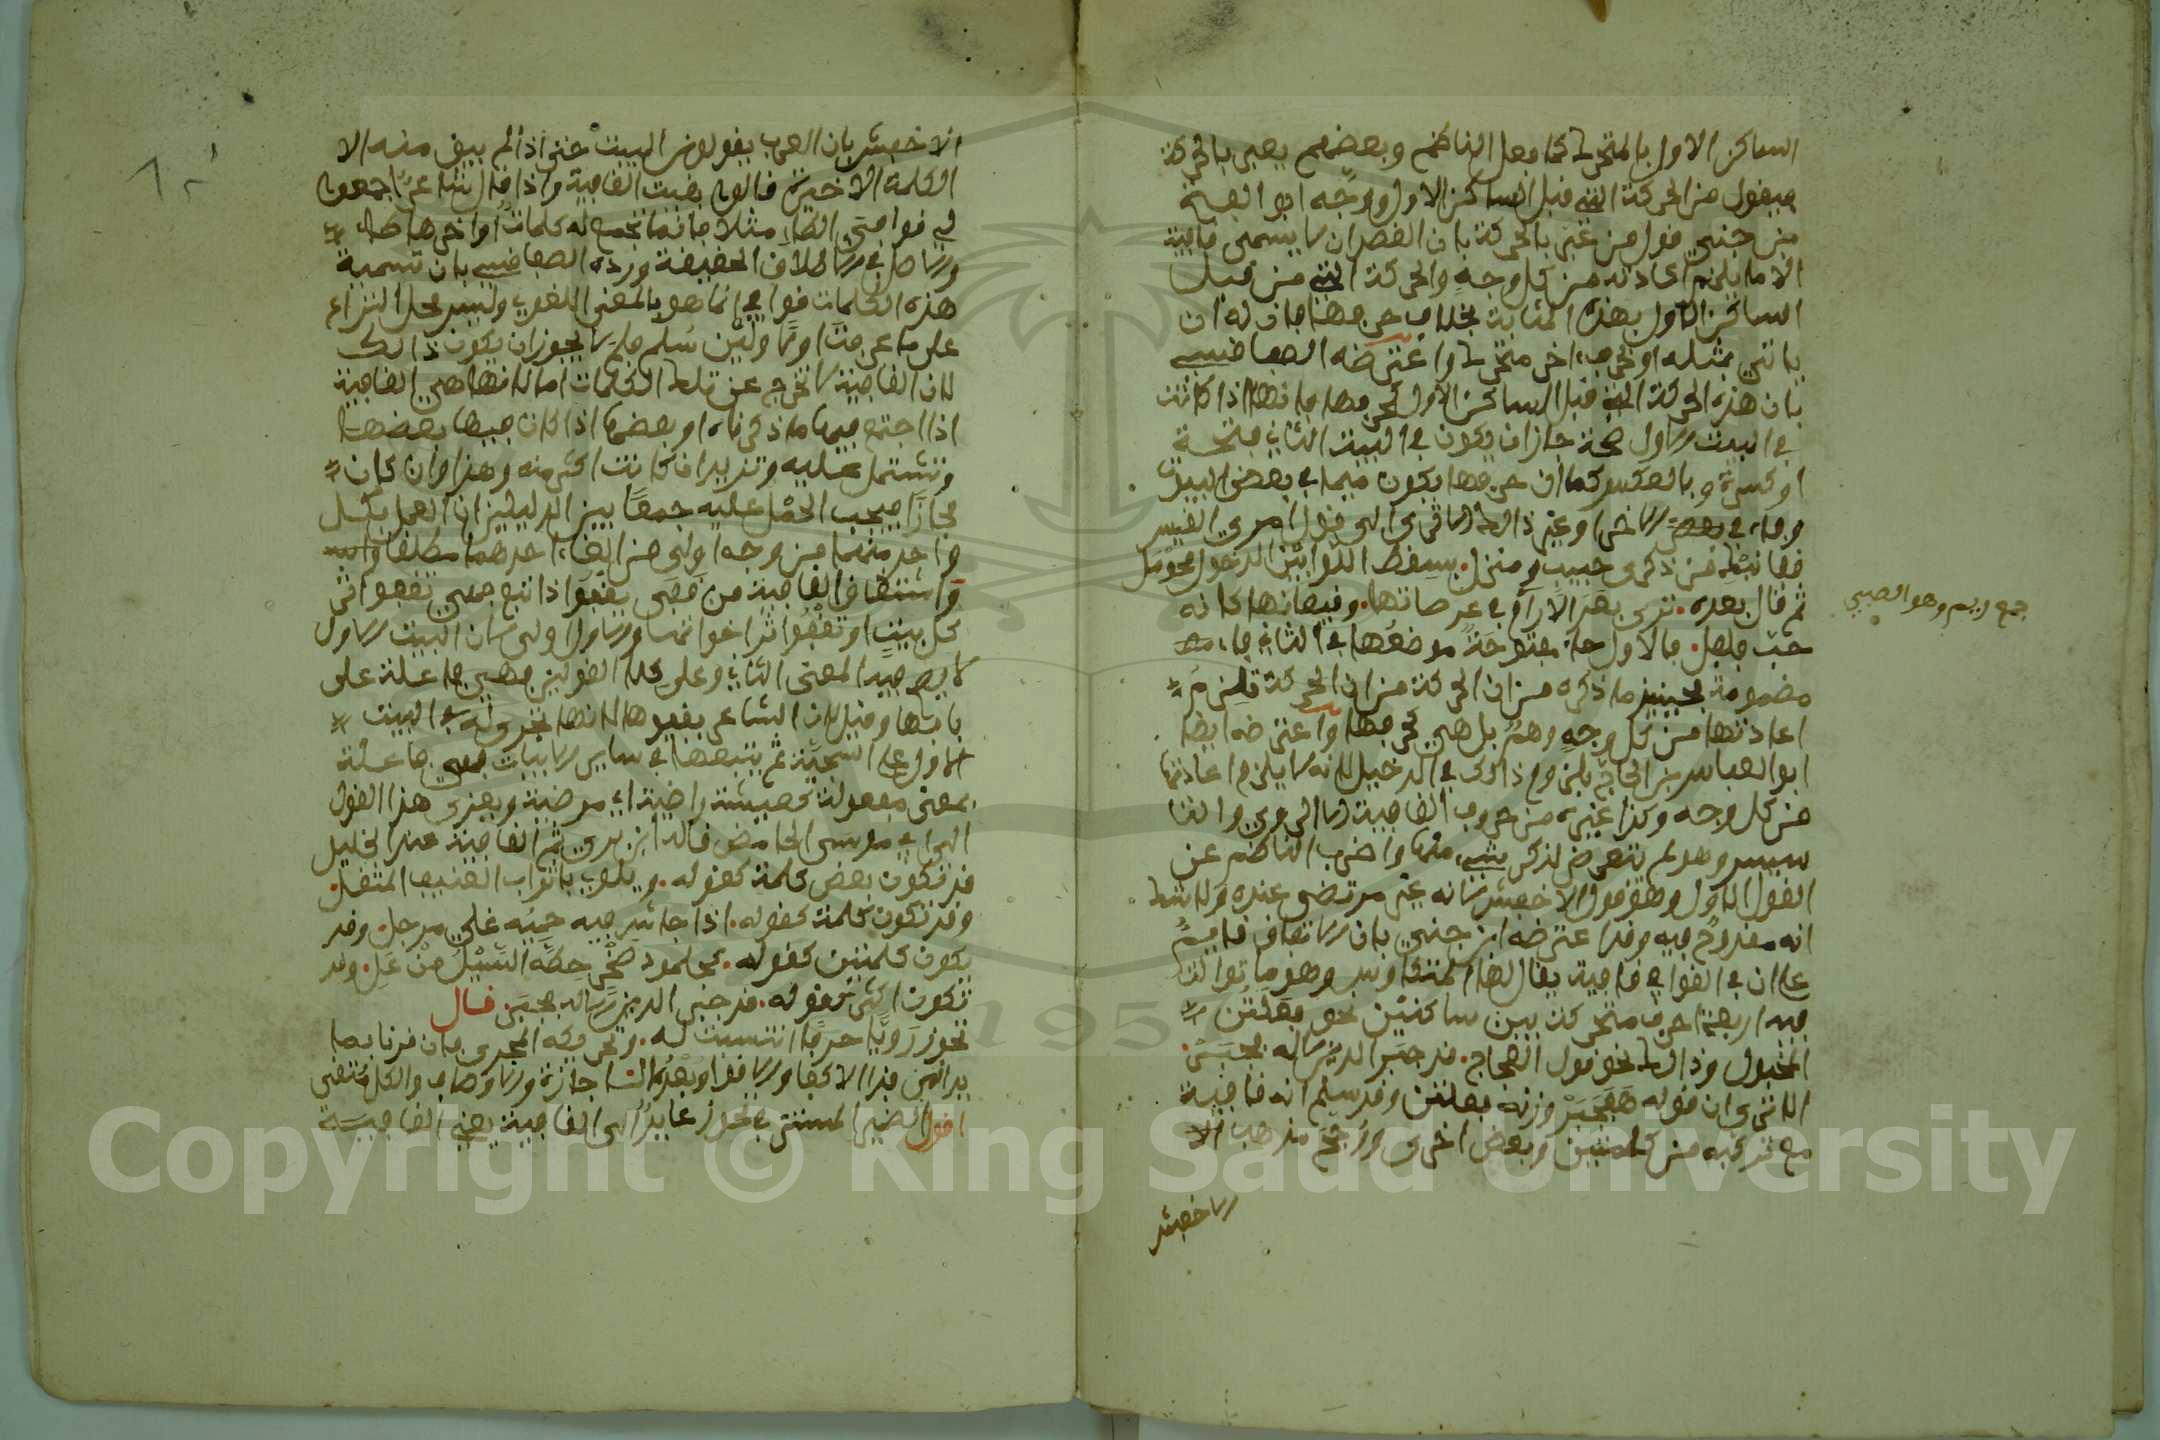 الساكن الاول بالمتحرك كما فعل الناظم وبعضهم يعبر بالحركة
فيقول من الحركة التي قبل الساكن الاول ووجه ابو الفتح
بن جني قول من عبر بالحركة بان القصد ان لا يسمى قافية
الا ما يلزم اعادته من كل وجه والحركة التي من قبل
الساكن الاول بهذه المثابة بخلاف حرفها فان له ان
ياتي بمثله او بحرف اخر متحرك واعترضه الصفاقسي
بان هذه الحركة التي قبل الساكن الاول كحرفها فانها اذا كانت
في البيت الاول ضمة جاز ان يكون في البيت الثاني فتحة
او كسرة وبالعكس كما ان حرفها يكون ميما في بعض البيوت
وفاء في بعض الاخر وغير ذالك الا ترى الى قول امرئ القيس
قفا نبك من ذكرى حبيب ومنزل. بسقط اللوا بين الدخول فحومل
ثم قال بعده. ترى بعر الارآم في عرصاتها. وقيعانها كانه
حب فلفل. فالاول حاء مفتوحة موضعها في الثاني فاء
مضمومة فحينئذ ما ذكره من ان الحركة تلزم
اعادتها من كل وجه وهم بل هي كحرفها واعترضه ايضا
ابو العباس بن الحاج بلزوم ذالك في الدخيل لانه لا يلزم اعادتها
من كل وجه وكذا غيره من حروف القافية الا الروي والتا
سيس وهو لم يتعرض لذكر شيء منها واضرب الناظم عن
القول الاول وهو قول الاخفش لانه غير مرتضى عنده ولا شك
انه مقدوح فيه وقد اعترضه ابن جني بان الاتفاق قايم
على ان في القوافي قافية يقال لها المتكاوس وهو ما توالت
فيه اربعة احرف متحركة بين ساكنين نحو فعلتن
المخبول وذالك نحو قول العجاج. قد جبر الدين الاله فجبر.
الا ترى ان قوله ه فجبر وزنه فعلتن وقد سلم انه قافية
مع تركبه من كلمتين وبعض اخرى ورجح مذهب الا
الاخفش
جمع ريم وهو الضبي
الاخفش بان العرب يقولون البيت حتى اذا لم يبق منه الا
الكلمة الاخيرة قالوا بقيت القافية واذا قال شاعر اجمعوا
لي قوافي الطاء مثلا فانما تجمع له كلمات اواخرها طاء
والاصل في الاطلاق الحقيقة ورده الصفاقسي بان تسمية
هذه الكلمات قوافي انما هو بالمعنى اللغوي وليس محل النزاع
على ما عرفت اولا ولئن سلم فلم لا يجوز ان يكون ذالك
لان القافية لا تخرج عن تلك الكلمات اما لانها هي القافية
اذا اجتمع فيها ما ذكرناه او بعضها اذا كان فيها بعضها
وتشتمل عليه وتزيد ان كانت اكثر منه وهذا وان كان
مجازا فيجب الحمل عليه جمعا بين الدليلين اذ العمل بكل
واحد منهما من وجه اولى من الغاء احدهما مطلقا
واشتقاق القافية من قفى يقفو اذا تبع فهي تقفو اثر
كل بيت او تقفو اثر اخواتها والاول اولى لان البيت الاول
لا يصح فيه المعنى الثاني وعلى كلا القولين فهي فاعلة على
بابها وقيل لان الشاعر يقفوها لانها تجري له في البيت
الاول على السجية ثم يتبعها في ساير الابيات فهي فاعلة
بمعنى مفعولة كعيشة راضية اي مرضية ويعزى هذا القول
الى ابي موسى الحامض قاله ابن بري ثم القافية عند الخليل
قد تكون بعض كلمة كقوله. ويلوي باثواب العنيف المثقل.
وقد تكون كلمة كقوله. اذا جاش فيه حميه غلي مرجل. وقد
يكون كلمتين كقوله. كجلمود صخر حطه السيل من عل. وقد
تكون اكثر كقوله. قد جبر الدين الاله فجبر. قال
تحوز رويا حرفا انتسبت له. وتحريكه المجرى فان قرنا بما
يدانيه فذا الاكفا والاقوا وبعده الاجازة والاصراف والكل متقى
اقول الضمير المستتر في تحوز عايد الى القافية يعني القافية